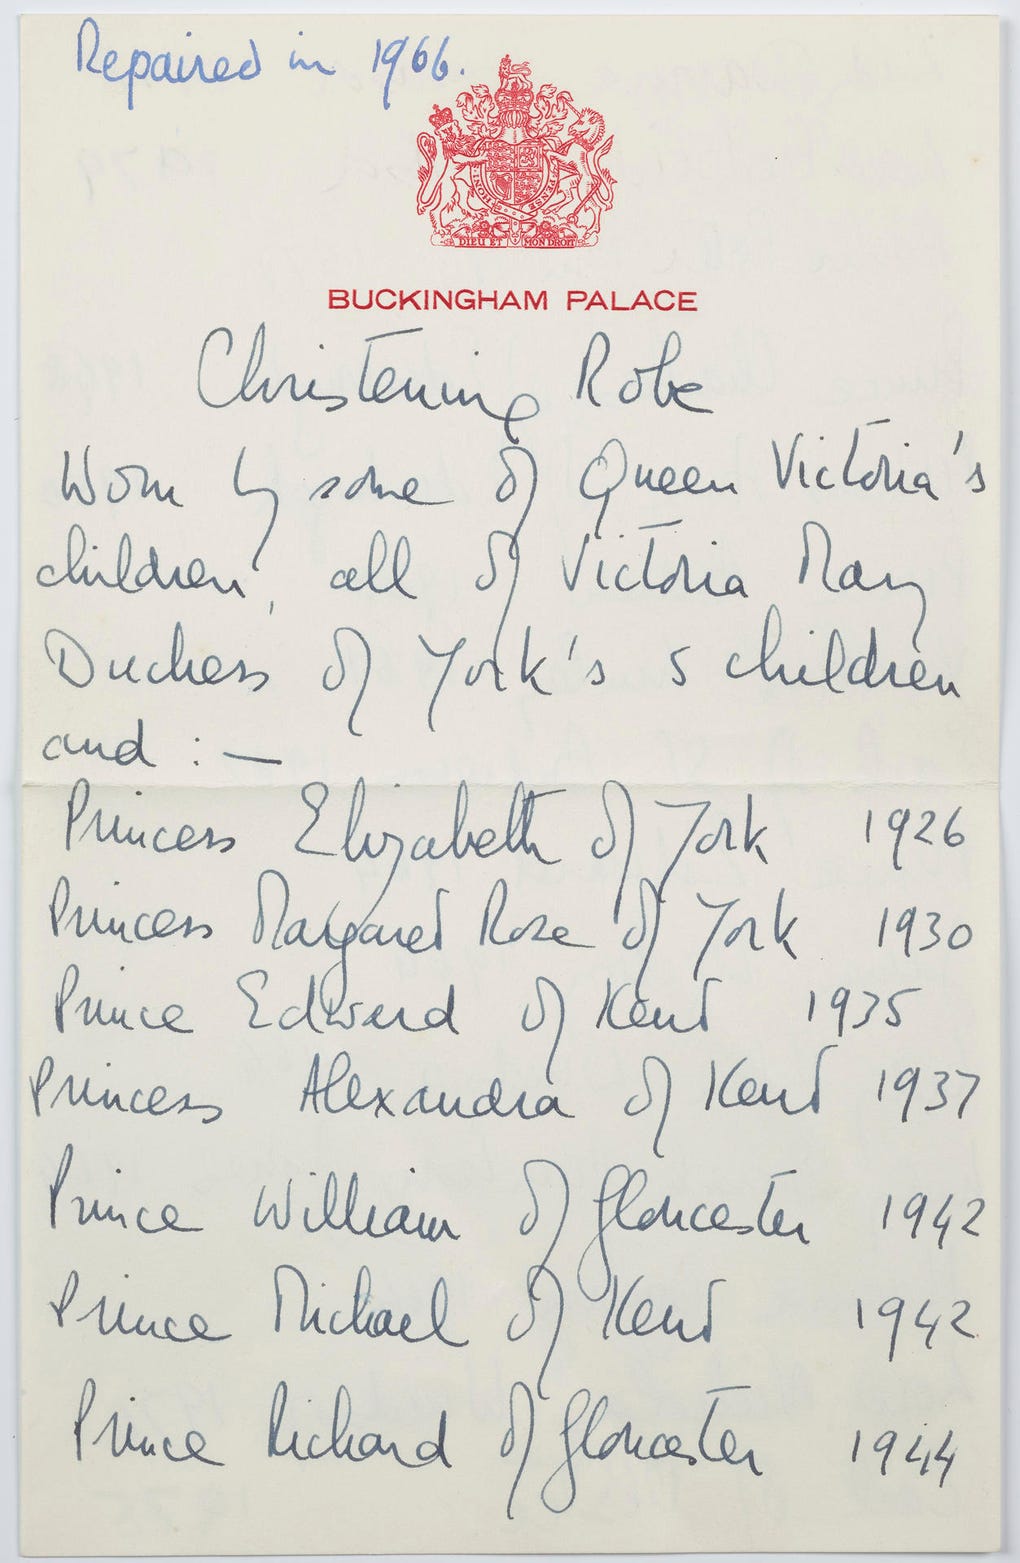 Repaired in 1966.
HONI
PENSE
DIEU ET MON DROIT
BUCKINGHAM PALACE
Christening Robe
Worn by some of Queen Victoria's
children, all of Victoria Mary
Duchess of York's 5 children
and : —
Princess Elizabeth of York 1926
Princess Margaret Rose of York 1930
Prince Edward of Kent 1935
Princess Alexandra of Kent 1937
Prince William of Gloucester 1942
Prince Michael of Kent 1942
Prince Richard of Gloucester 1944